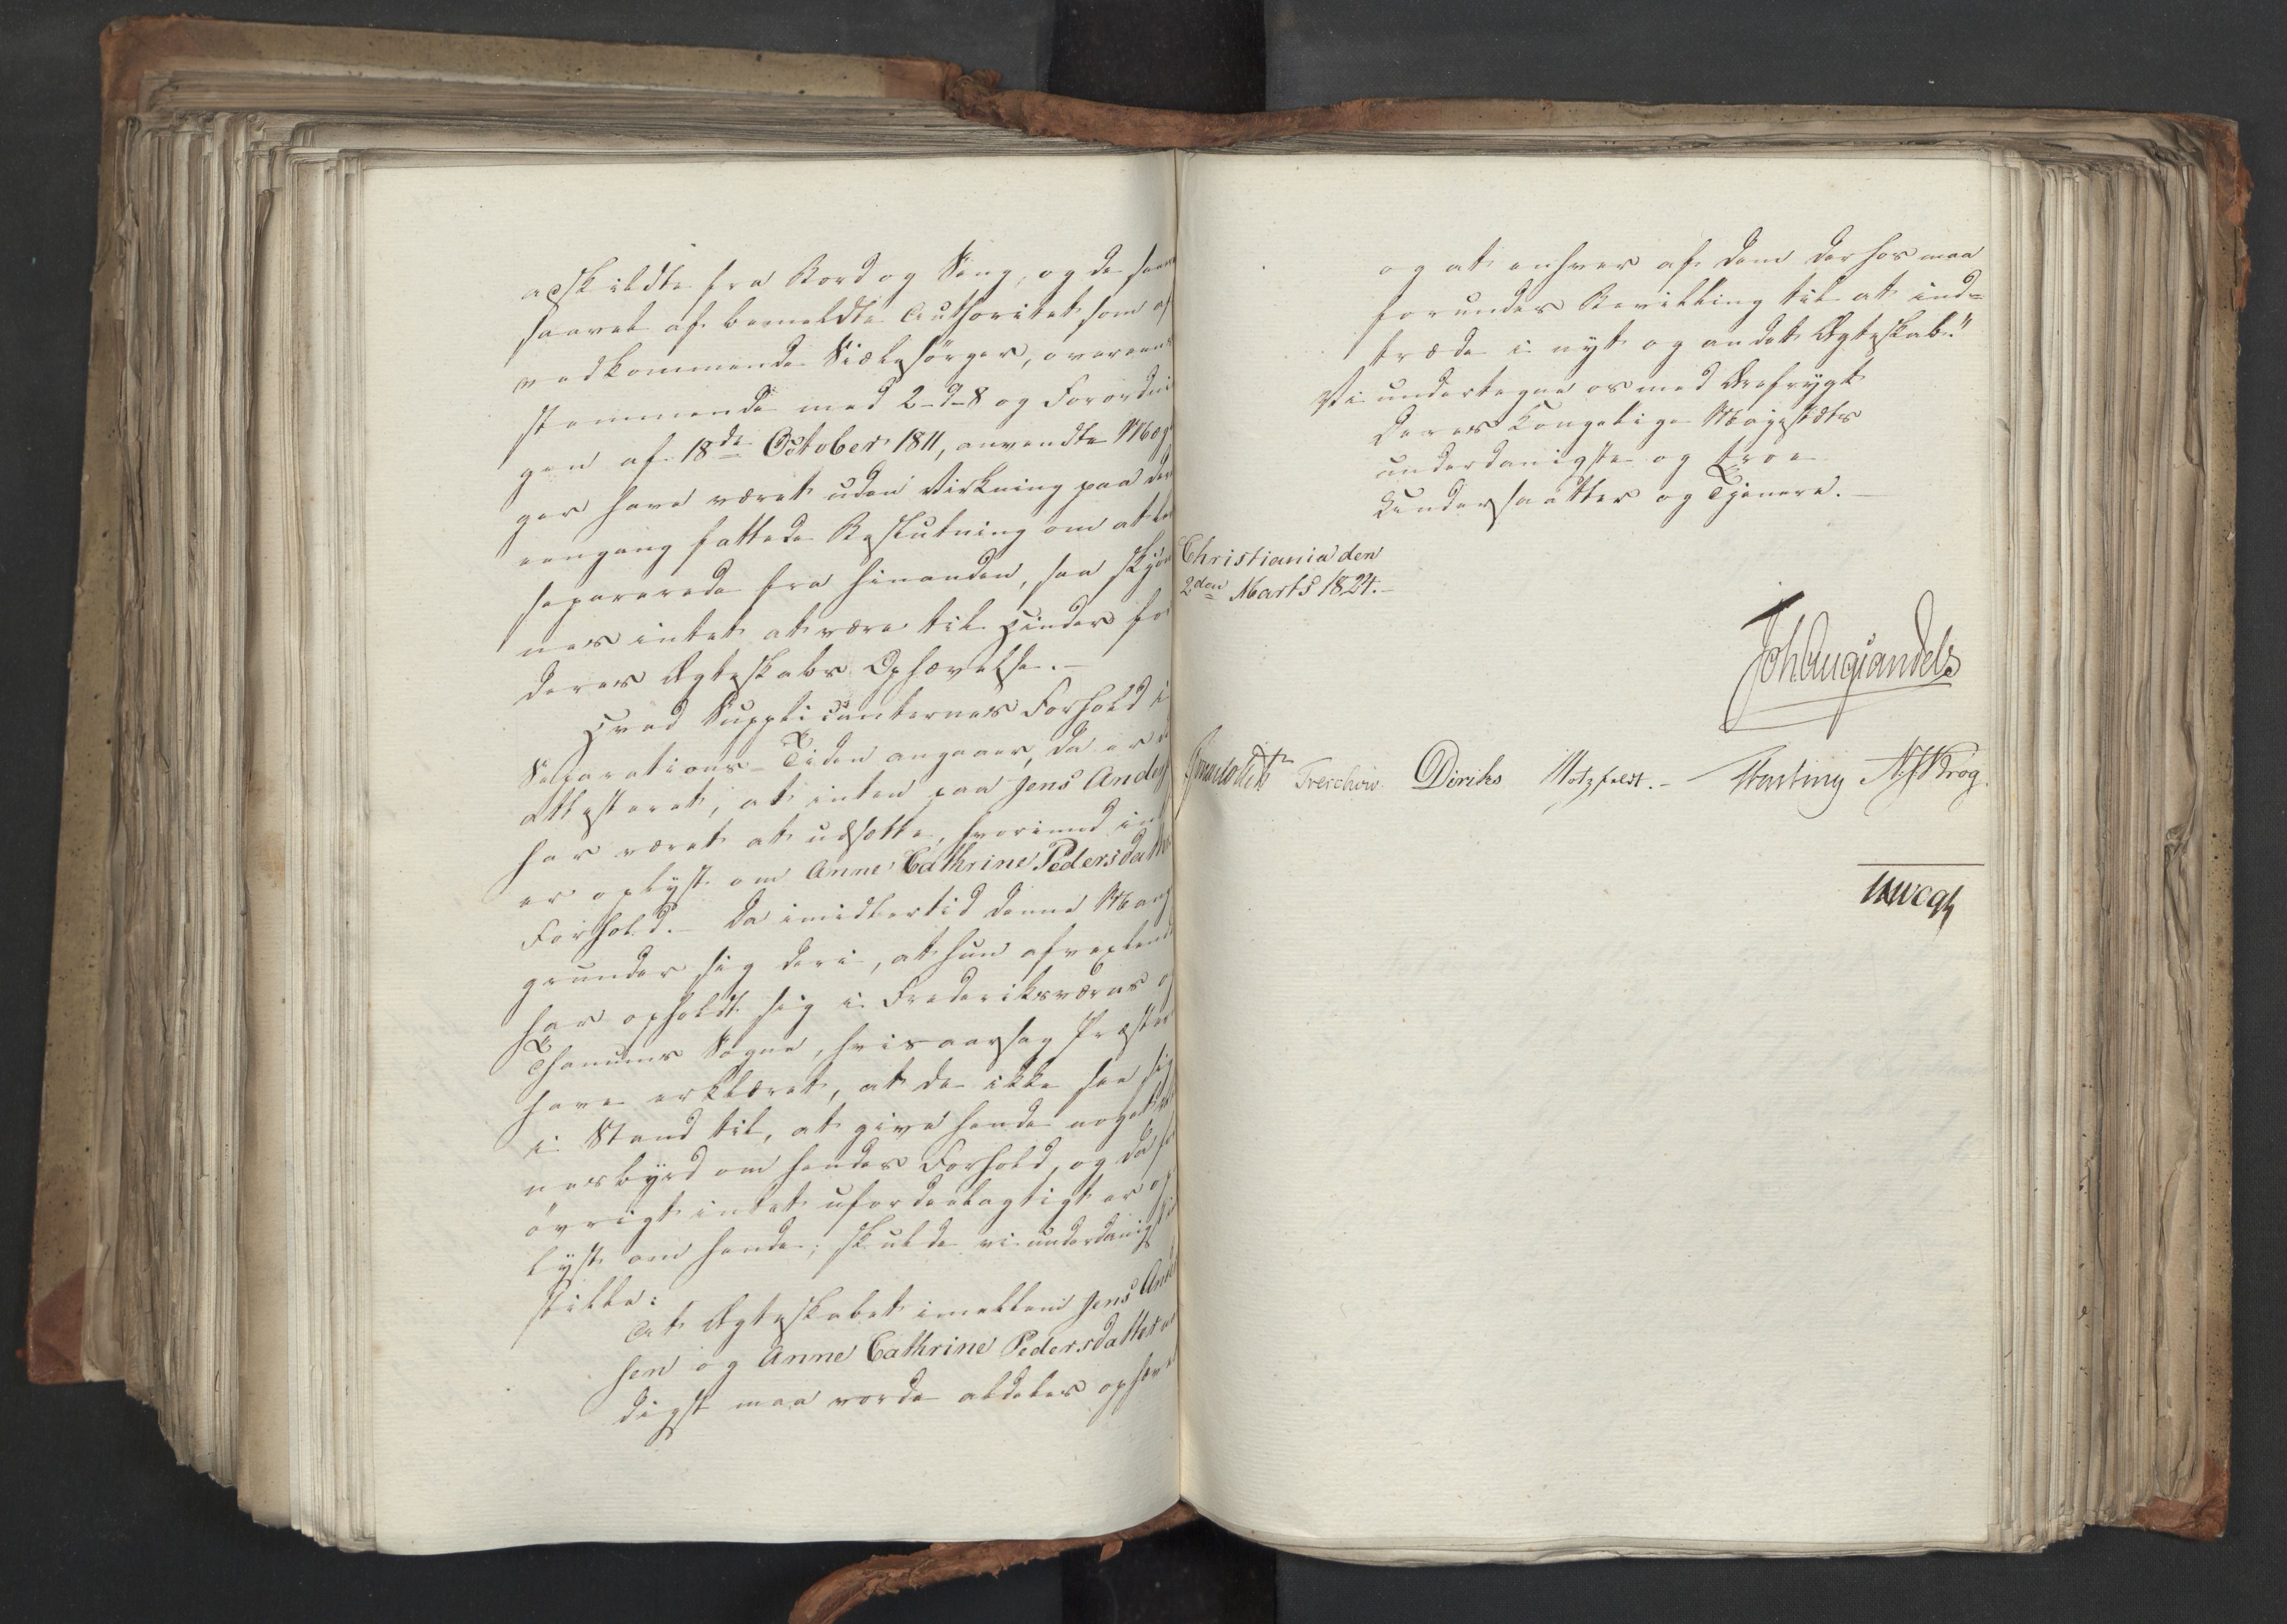 adskildte fra Bord og Seng, og de saa
saavel af bemeldte Authoritet som af
vedkommende Siælesørger, overeens
stemmende med 2-9-8 og Forordnin
gen af 18de October 1811, anvendte Mæg
ger have været uden Virkning paa der
eengang fattede Beslutning om at
separerede fra hinanden, saa skjøn
nes intet at være til Hinder for
deres Ægteskabs Ophævelse.-
Hvad Supplicanternes Forhold i
Separations-Tiden angaaer, da er
attesteret, at intet paa Jens Anders
har været at udsætte, hvorimod in
er oplyst om Anne Cathrine Pedersdatte
Forhold.- Da imidlertid denne Mang
grunder sig deri, at hun afvexlende
har opholdt sig i Frederiksværns og
Thanums Sogne, hvisaarsag Præster
have erklæret, at de ikke see sig
i Stand til, at give hende noget
nesbyrd om hendes Forhold, og da
øvrigt intet ufordeelagtigt er op
lyst om hende; skulde vi underdanigst
stille:
At Ægteskabet imellem Jens Ander
sen og Anne Cathrine Pedersdatter
digst maa vorde aldeles ophæv
og at enhver af dem derhos maa
forundes Bevilling til at ind=
træde i nyt og andet Ægteskab."
Vi undertegne os med Ærefrygt
Deres Kongelige Majestæts
underdanigste og troe
Undersaatter og Tjenere.-
Christiania den
2den Marts 1824.-
Joh. Aug. Sandels
Treschow Diriks Motzfeldt.- Fasting N.J. Krog.